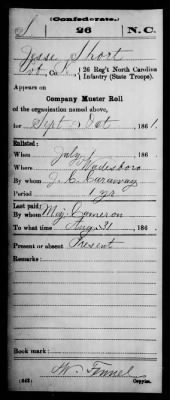 (Confederate.)
S 26 N.C.
Jesse Short
Pvt, Co. K, 26 Reg't North Carolina
Infantry (State Troops).
Appears on
Company Muster Roll
of the organization named above,
for Sept & Oct, 1861.
Enlisted:
When July 1, 186 .
Where Wadesboro
By whom J. C. Caraway
Period 1 yr
Last paid:
By whom Maj. Cameron
To what time Aug 31, 186 .
Present or absent Present
Remarks:
Book mark:
W. Fennel
(642) Copyist.